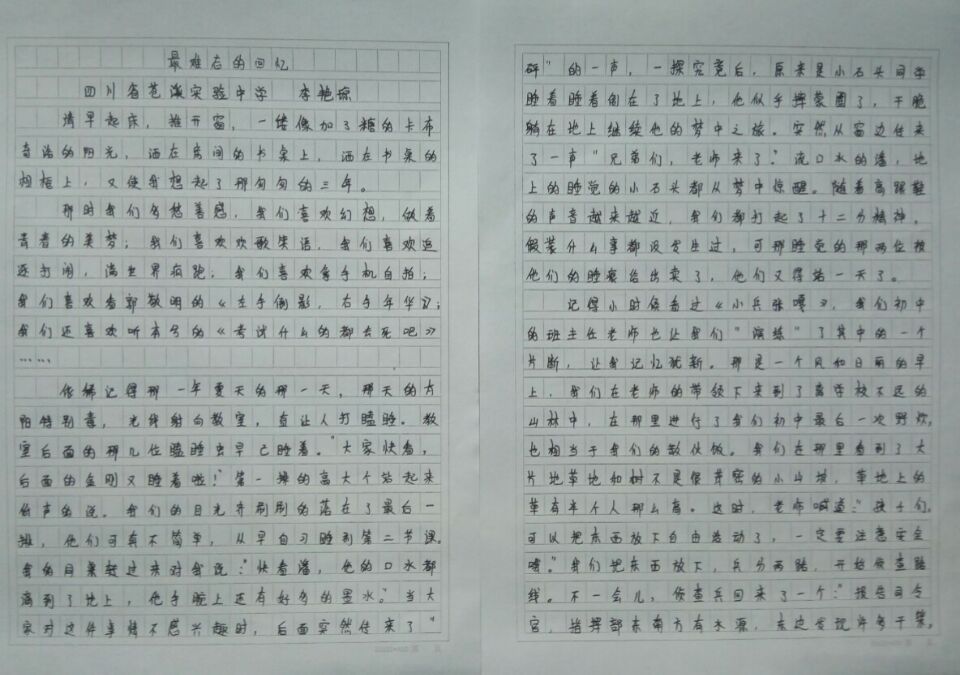 最难忘的回忆
四川省苍溪实验中学 李艳琼
清早起床，推开窗，一缕像加了糖的卡布
奇洛的阳光，洒在房间的书桌上，洒在书桌的
相框上，又使我想起了那匆匆的三年。
那时我们多愁善感，我们喜欢幻想，做着
青春的美梦；我们喜欢欢歌笑语，我们喜欢追
逐打闹，满世界疯跑；我们喜欢拿手机自拍；
我们喜欢看郭敬明的《左手倒影，右手年华》；
我们还喜欢听本兮的《考试什么的都去死吧》
……
依稀记得那一年夏天的那一天，那天的太
阳特别毒，光线射向教室，直让人打瞌睡。教
室后面的那几位瞌睡虫早已睡着。“大家快看，
后面的金刚又睡着啦！”第一排的高大个站起来
俏声的说。我们的目光齐刷刷的落在了最后一
排，他们可真不简单，从早自习睡到第二节课。
我的同桌转过来对我说：“快看潘，他的口水都
滴到了地上，他手腕上还有好多的墨水。”当大
家对这件事情不感兴趣时，后面突然传来了“
砰”的一声，一探究竟后，原来是小石头同学
睡着睡着倒在了地上，他似乎摔蒙圈了，干脆
躺在地上继续他的梦中之旅。突然从窗边传来
了一声“兄弟们，老师来了。”流口水的潘，地
上的睡觉的小石头都从梦中惊醒。随着高跟鞋
的声音越来越近，我们都打起了十二分精神，
假装什么事都没发生过，可那睡觉的那两位被
他们的睡姿给出卖了，他们又得站一天了。
记得小时候看过《小兵张嘎》，我们初中
的班主任老师也让我们“演练”了其中的一个
片断，让我记忆犹新。那是一个风和日丽的早
上，我们在老师的带领下来到了离学校不远的
山林中，在那里进行了我们初中最后一次野炊，
也相当于我们的散伙饭。我们在那里看到了大
片地草地和树不是很茂密的小山坡，草地上的
草有半个人那么高。这时，老师喊道：“孩子们，
可以把东西放下自由活动了，一定要注意安全
噢。”我们把东西放下，兵分两路，开始侦查路
线。不一会儿，侦查兵回来了一个：“报告司令
官，指挥部东南方有水源，东边发现许多干柴，